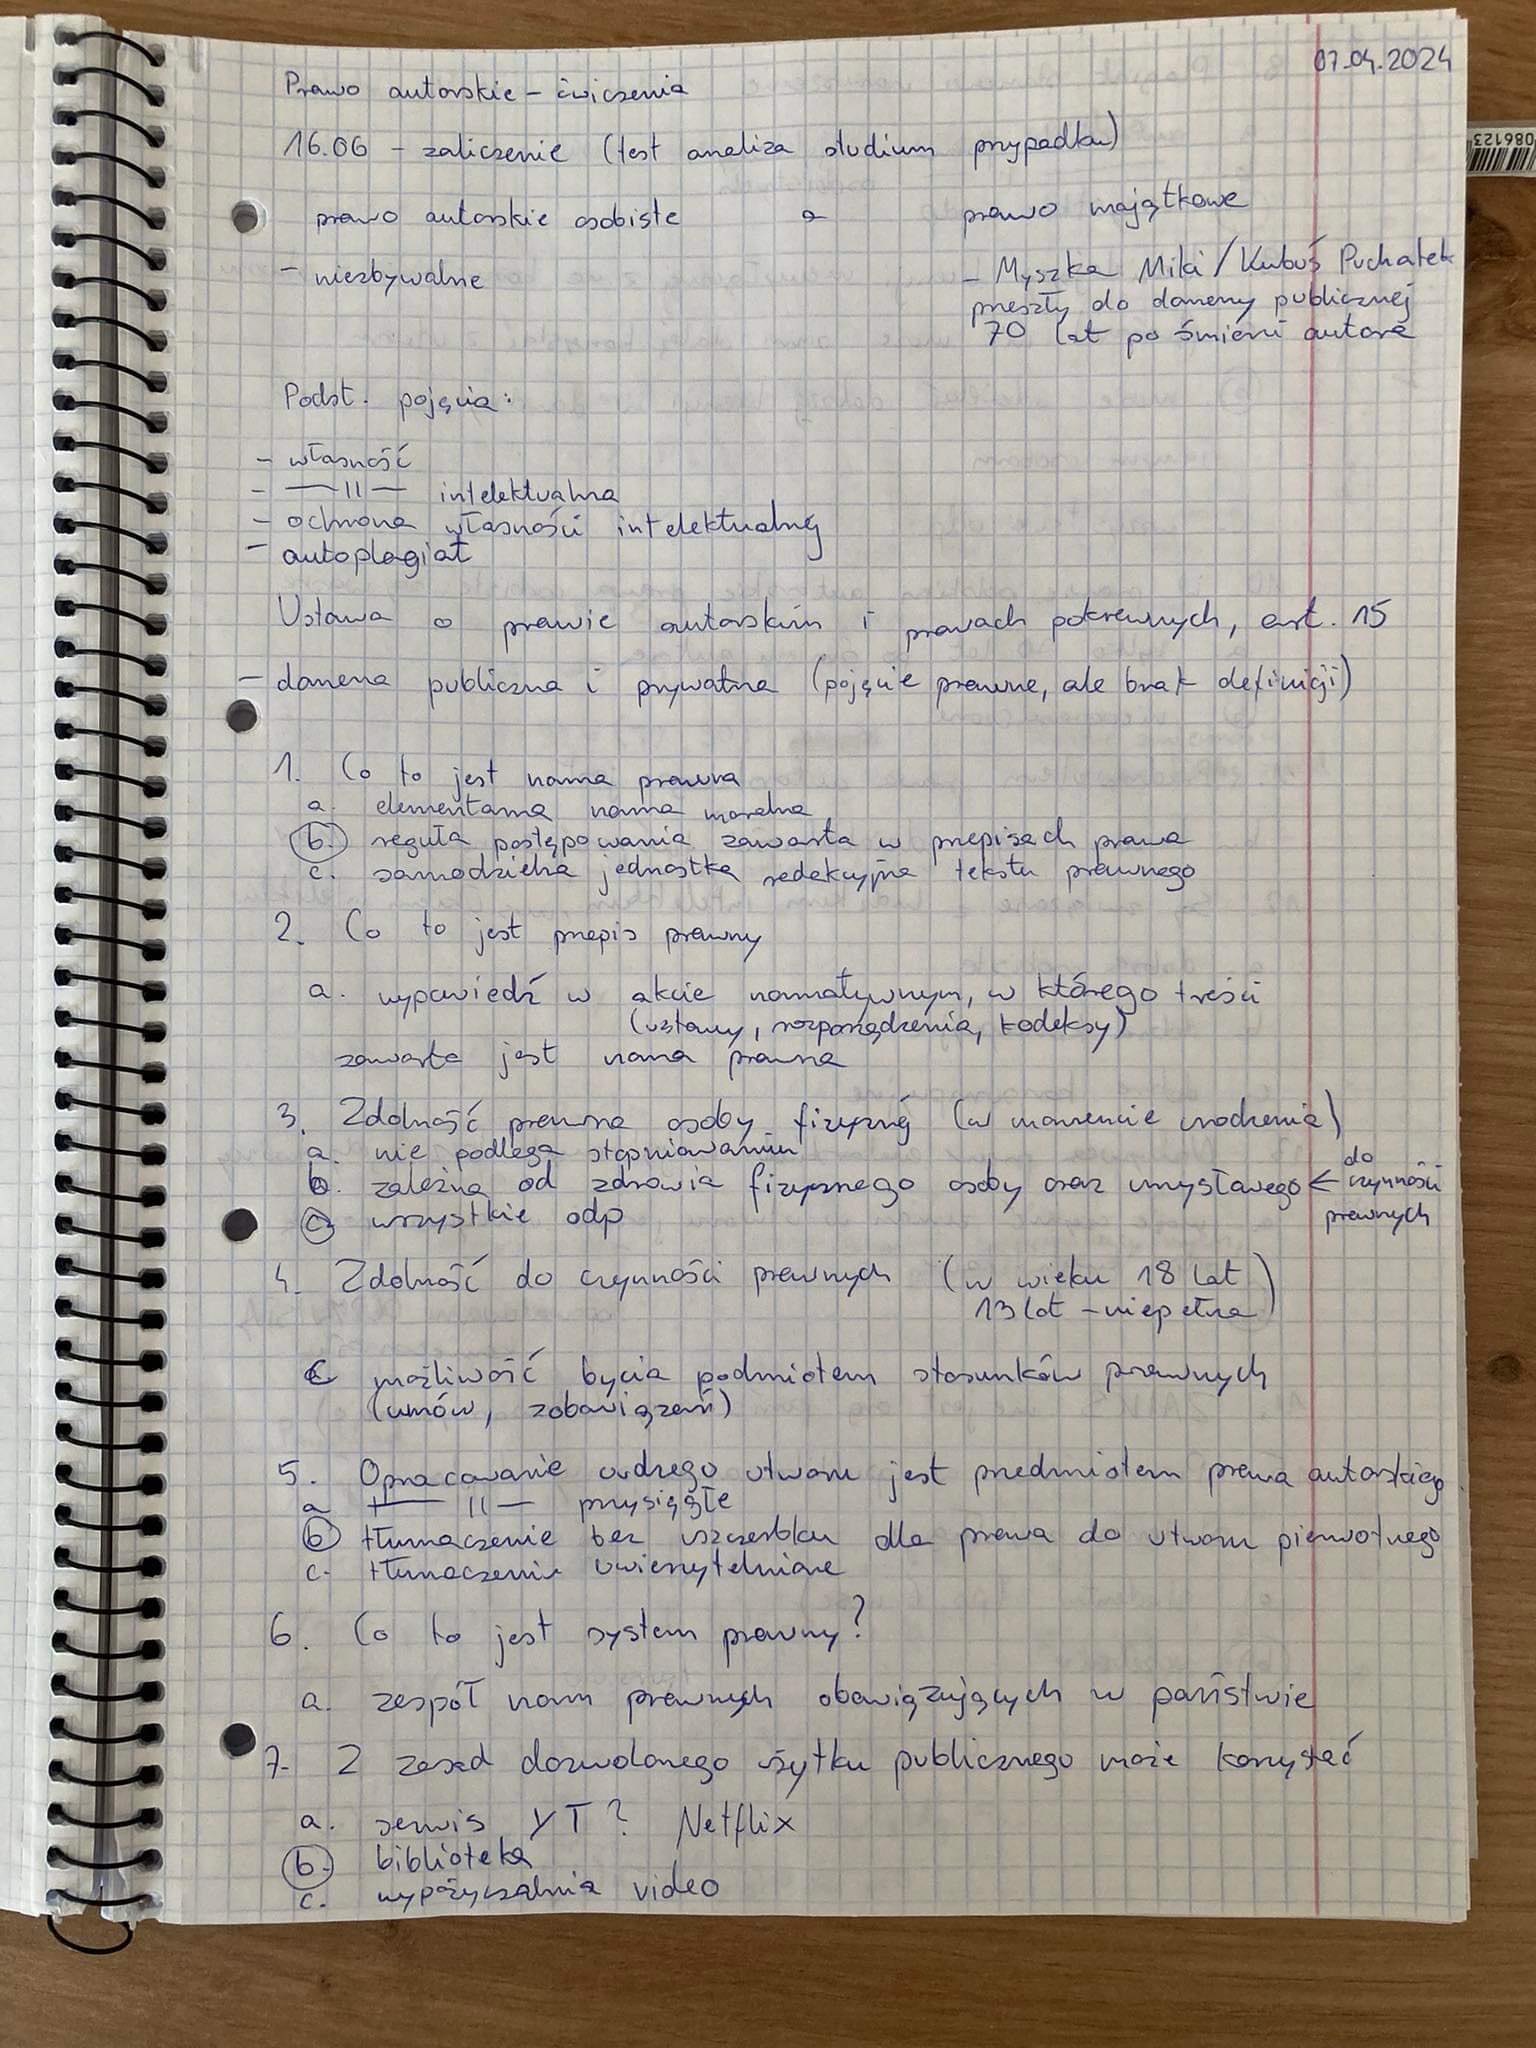 07.04.2024
Prawo autorskie – ćwiczenia
16.06 – zaliczenie (test analiza studium przypadku)
prawo autorskie osobiste a prawo majątkowe
– niezbywalne
– Myszka Miki / Kubuś Puchatek
przeszły do domeny publicznej
70 lat po śmierci autora
Podst. pojęcia:
– własność
– —— 11 — intelektualna
– ochrona własności intelektualnej
– autoplagiat
Ustawa o prawie autorskim i prawach pokrewnych, art. 15
– domena publiczna i prywatna (pojęcie prawne, ale brak definicji)
1. Co to jest norma prawna
a. elementarna norma moralna
b. reguła postępowania zawarta w przepisach prawa
c. samodzielna jednostka redakcyjna tekstu prawnego
2. Co to jest przepis prawny
a. wypowiedź w akcie normatywnym, w którego treści
(ustawy, rozporządzenia, kodeksy)
zawarta jest norma prawna
3. Zdolność prawna osoby fizycznej (w momencie urodzenia)
a. nie podlega stopniowaniu
b. zależna od zdrowia fizycznego osoby oraz umysłowego ← do czynności prawnych
c. wszystkie odp
4. Zdolność do czynności prawnych (w wieku 18 lat
13 lat – niepełna)
c możliwość bycia podmiotem stosunków prawnych
(umów, zobowiązań)
5. Opracowanie cudzego utworu jest przedmiotem prawa autorskiego
a —— 11 — przysięgłe
b tłumaczenie bez uszczerbku dla prawa do utworu pierwotnego
c. tłumaczenie uwierzytelnione
6. Co to jest system prawny?
a. zespół norm prawnych obowiązujących w państwie
7. Z zasad dozwolonego użytku publicznego może korzystać
a. serwis YT? Netflix
b. biblioteka
c. wypożyczalnia video
086123